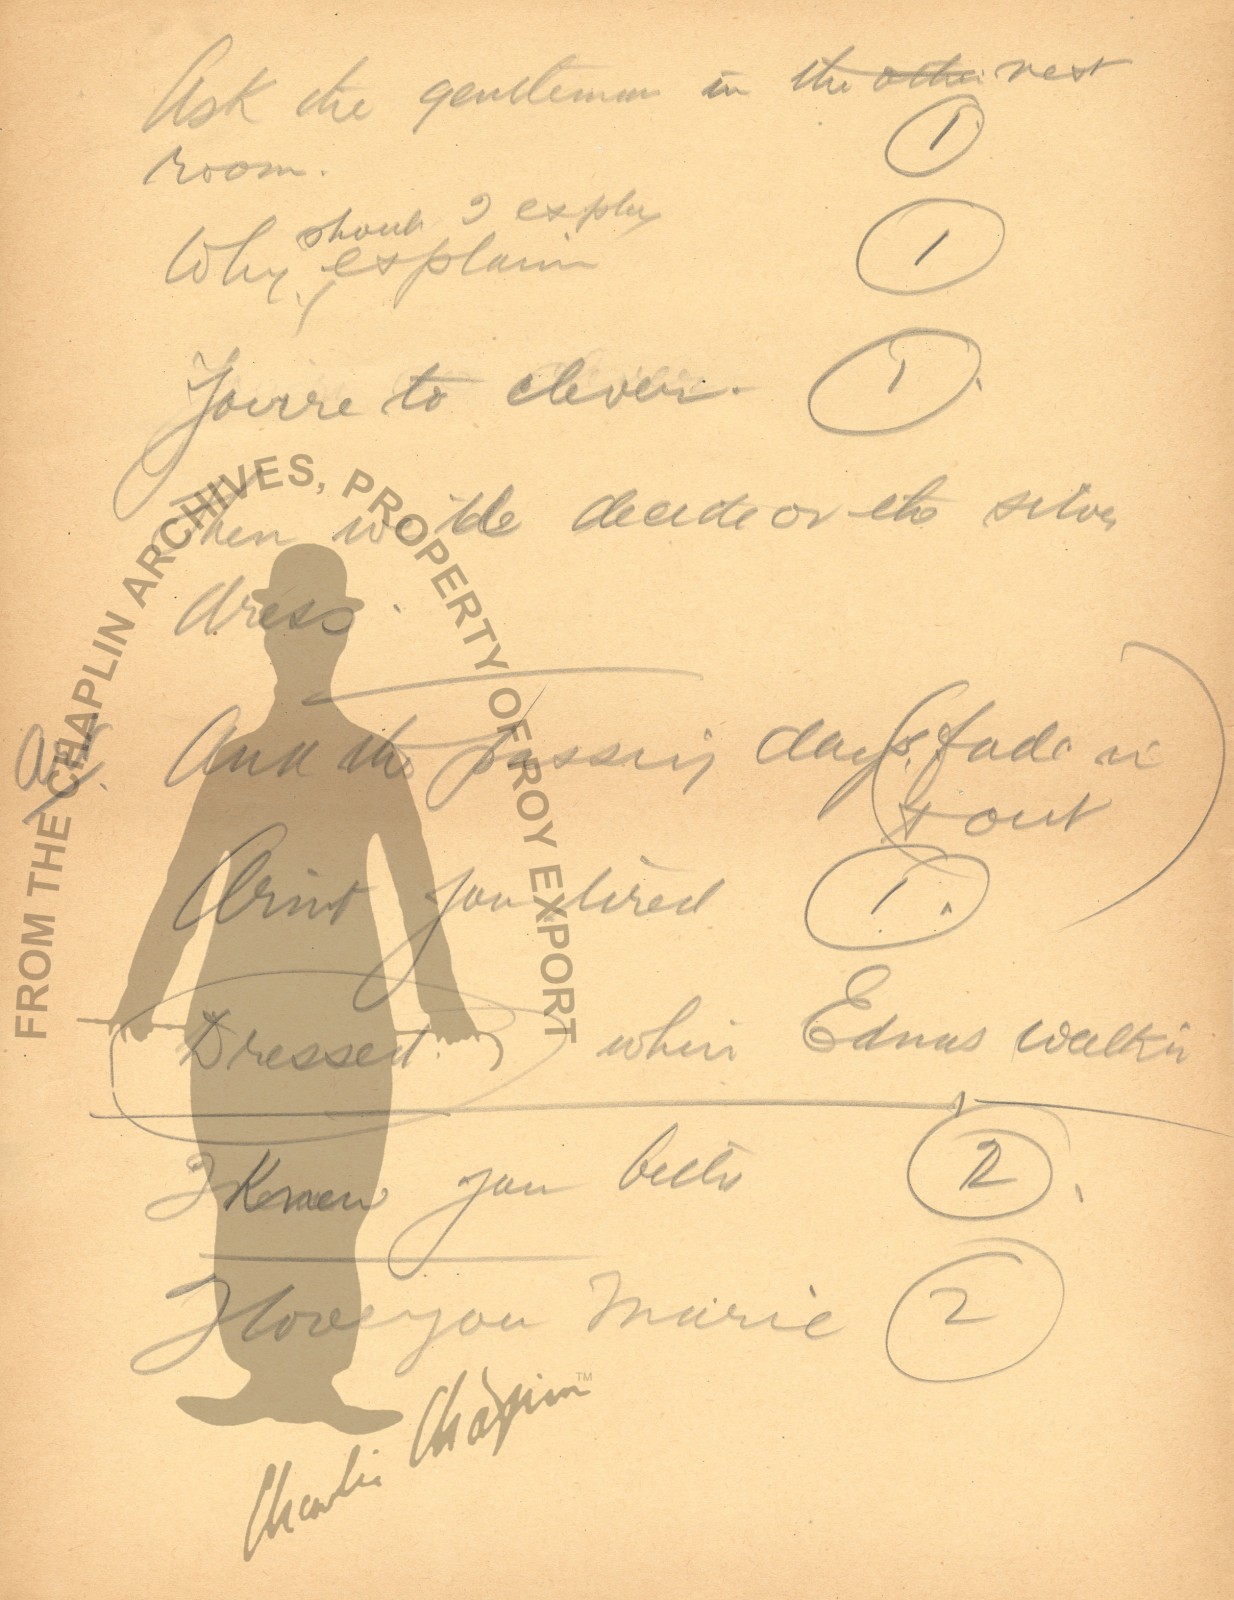 Ask the gentleman in the other next
1
room.
should I explain
Why, explain
1
Yourre to clever.
1.
then we'll decide on the silver
dress.
And the passing days. fade in
& out
Arint you tired
1.
Dressed. when Ednas walkin
I Knew you better
2.
I love you Marie
2
FROM THE CHAPLIN ARCHIVES, PROPERTY OF ROY EXPORT
Charlie Chaplin™